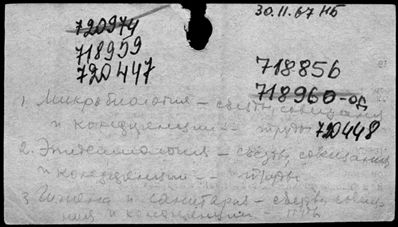 30.11.67 НБ
720974
718959
720447
718856
718960-од
720448
1. Микробиология - съезды, совещания
и конференции -- труды
2. Эпидемиология - съезды, совещания
и конференции -- труды
3. Гигиена и санитария - съезды, совеща-
ния и конференции -- труды